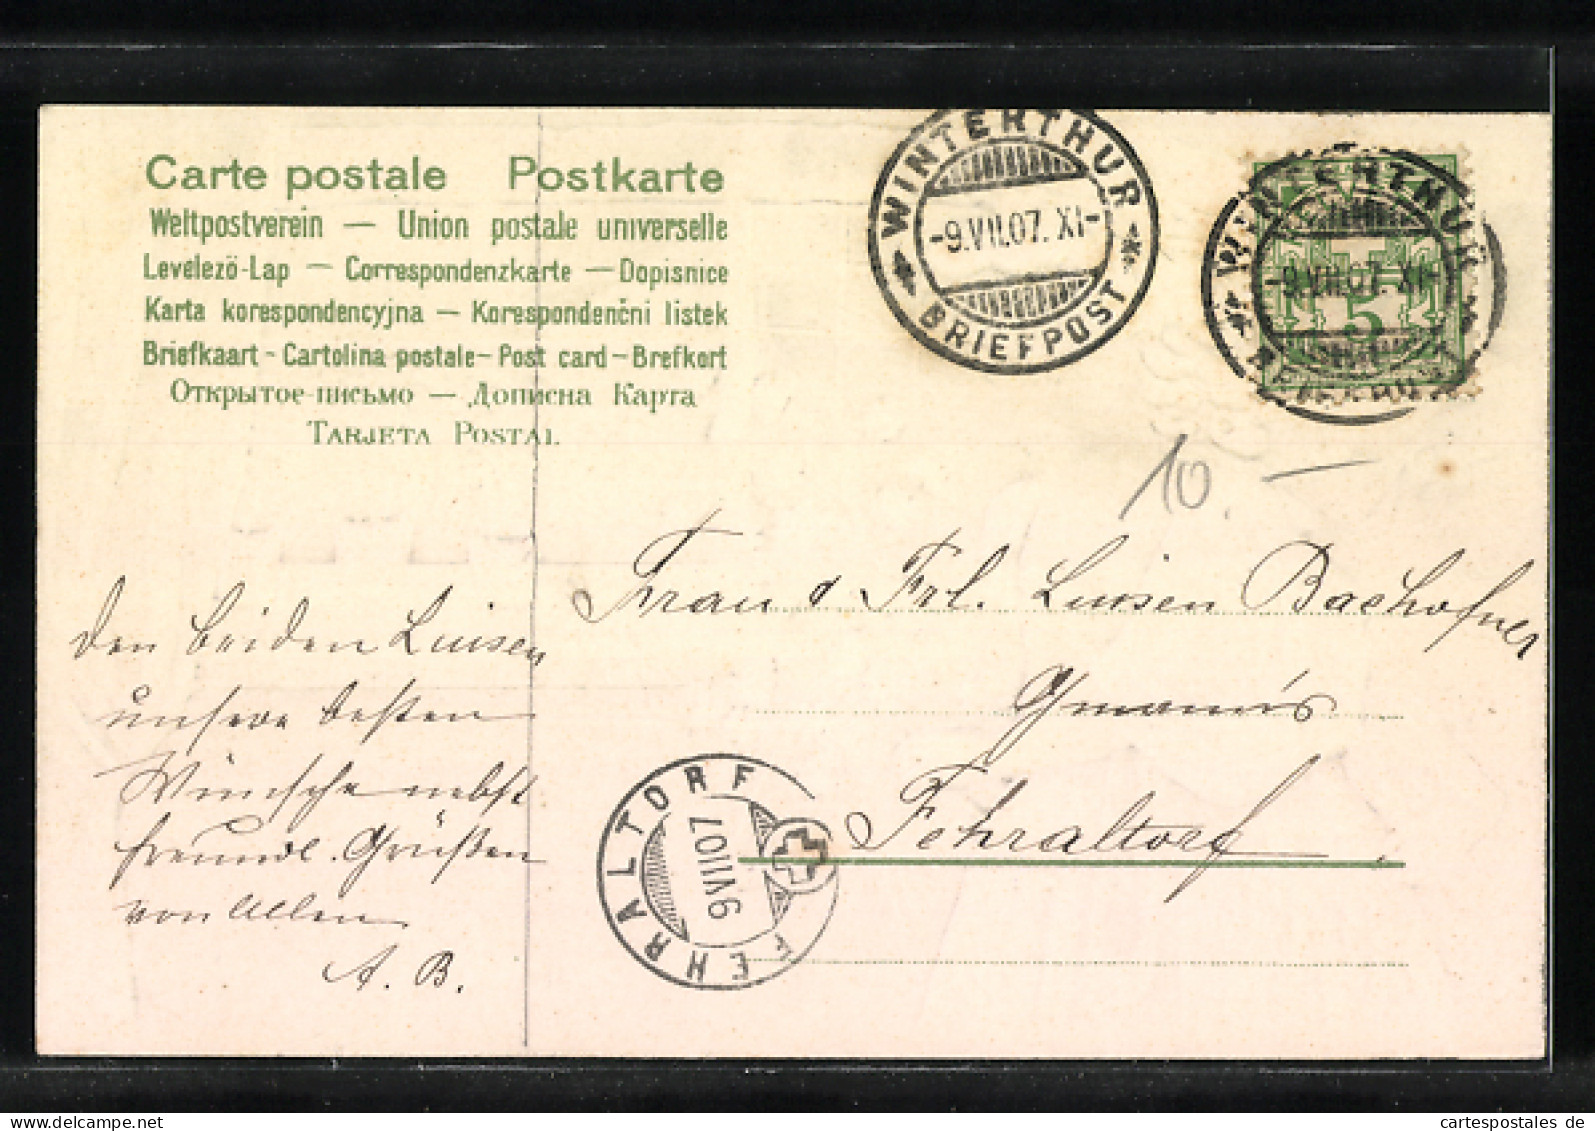 Carte postale Postkarte
Weltpostverein — Union postale universelle
Levelező-Lap — Correspondenzkarte — Dopisnice
Karta korespondencyjna — Korespondenčni listek
Briefkaart - Cartolina postale - Post card - Brefkort
Открытое письмо — Дописна Карта
TARJETA POSTAL
WINTERTHUR
-9.VII.07. XI-
BRIEFPOST
WINTERTHUR
-9.VII.07. XI-
BRIEFPOST
5
10. —
Frau & Frl. Luisen Bachofner
Fehraltorf
FEHRALTORF
9 VII 07
Den beiden Luisen
unsere besten
Wünsche nebst
freundl. Grüßen
von Allen
A. B.
cartespostales de